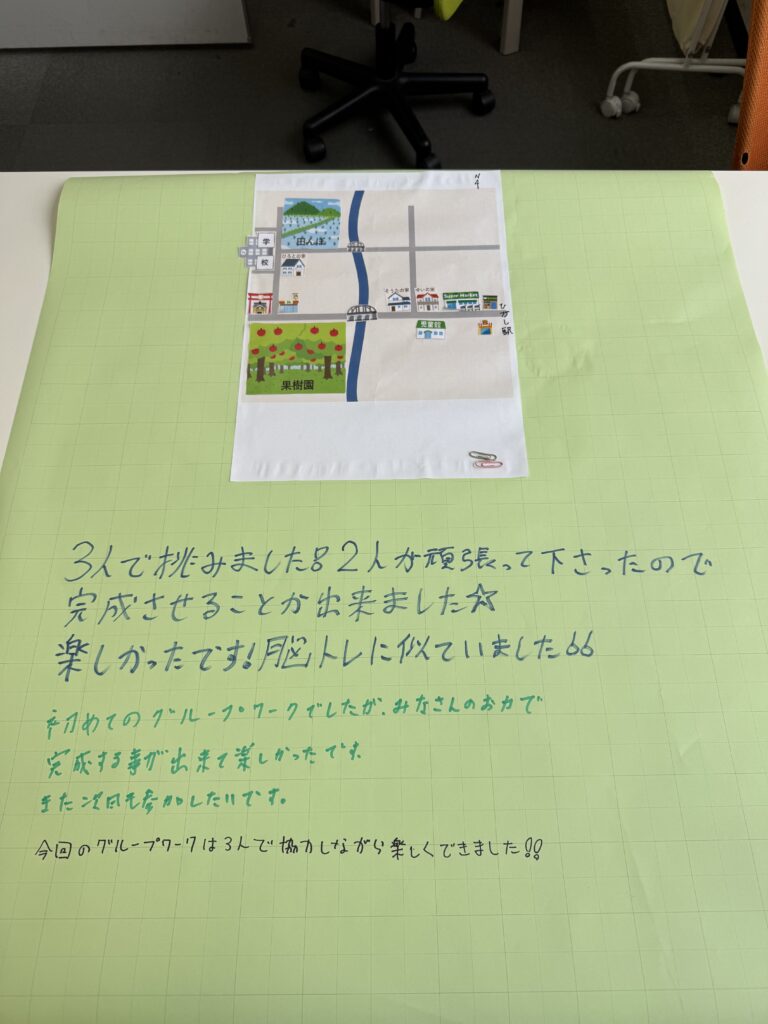 N4
田んぼ
学
校
ひろとの家
そうたの家
ゆいの家
Super Market
児童館
ひがし駅
果樹園
3人で挑みました!!2人が頑張って下さったので
完成させることが出来ました☆
楽しかったです!脳トレに似ていました!!
初めてのグループワークでしたが、みなさんのお力で
完成する事が出来て楽しかったです。
また次回も参加したいです。
今回のグループワークは3人で協力しながら楽しくできました!!